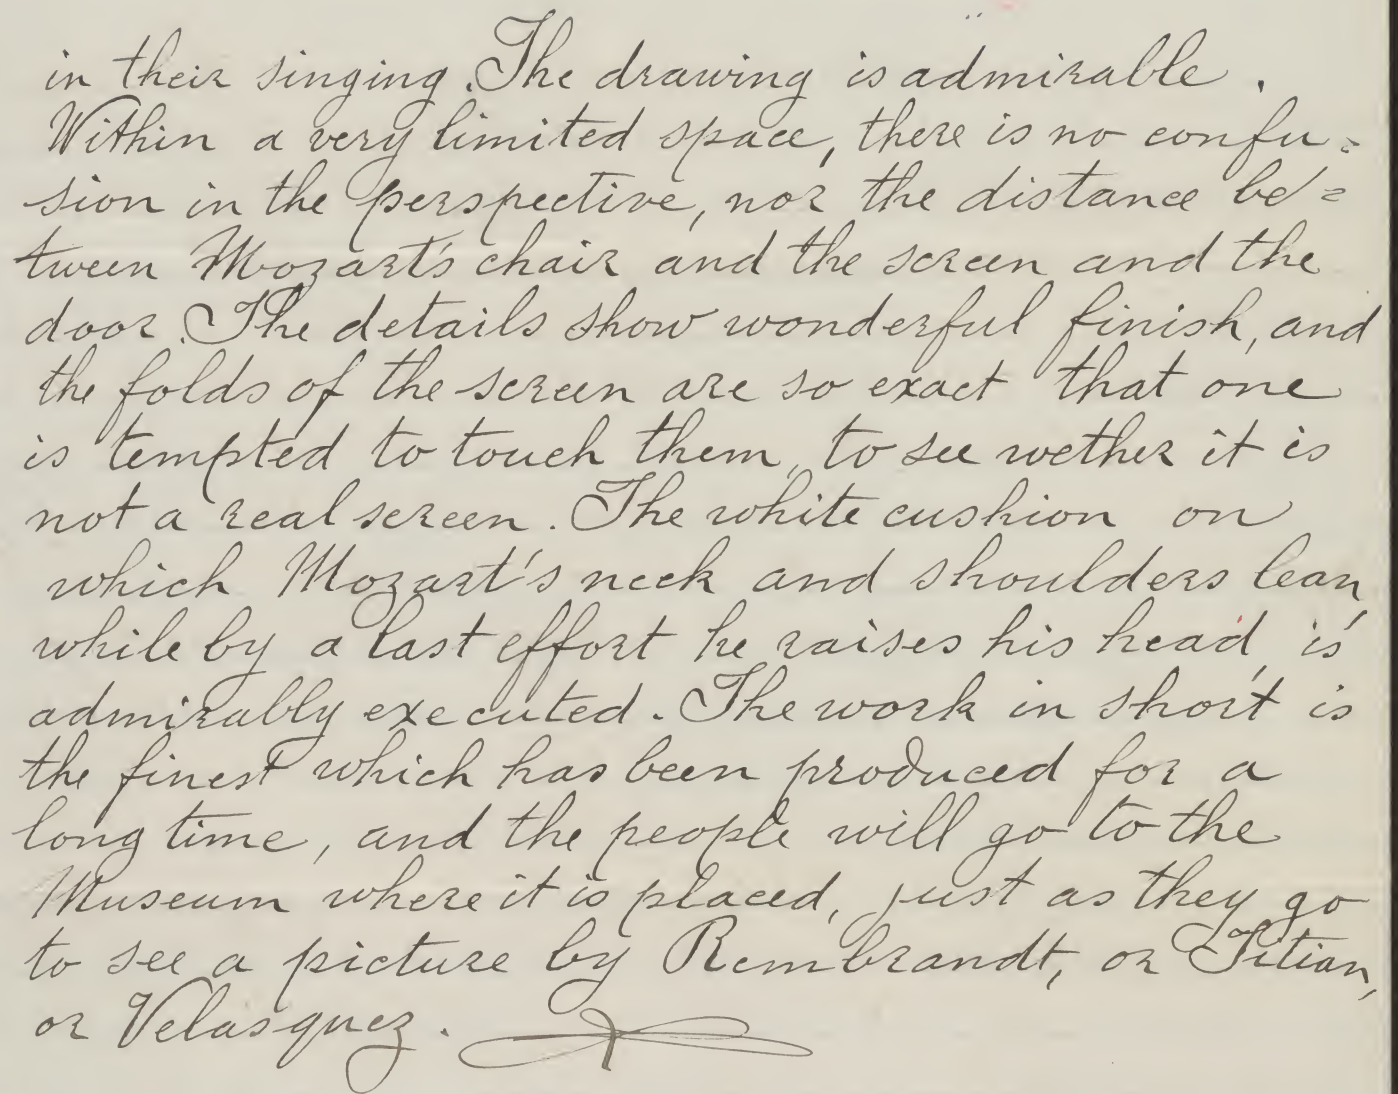 in their singing. The drawing is admirable.
Within a very limited space, there is no confu=
sion in the perspective, nor the distance be=
tween Mozart's chair and the screen and the
door. The details show wonderful finish, and
the folds of the screen are so exact that one
is tempted to touch them, to see wether it is
not a real screen. The white cushion on
which Mozart's neck and shoulders lean,
while by a last effort he raises his head, is
admirably executed. The work in short is
the finest which has been produced for a
long time, and the people will go to the
Museum where it is placed, just as they go
to see a picture by Rembrandt, or Titian,
or Velasquez.